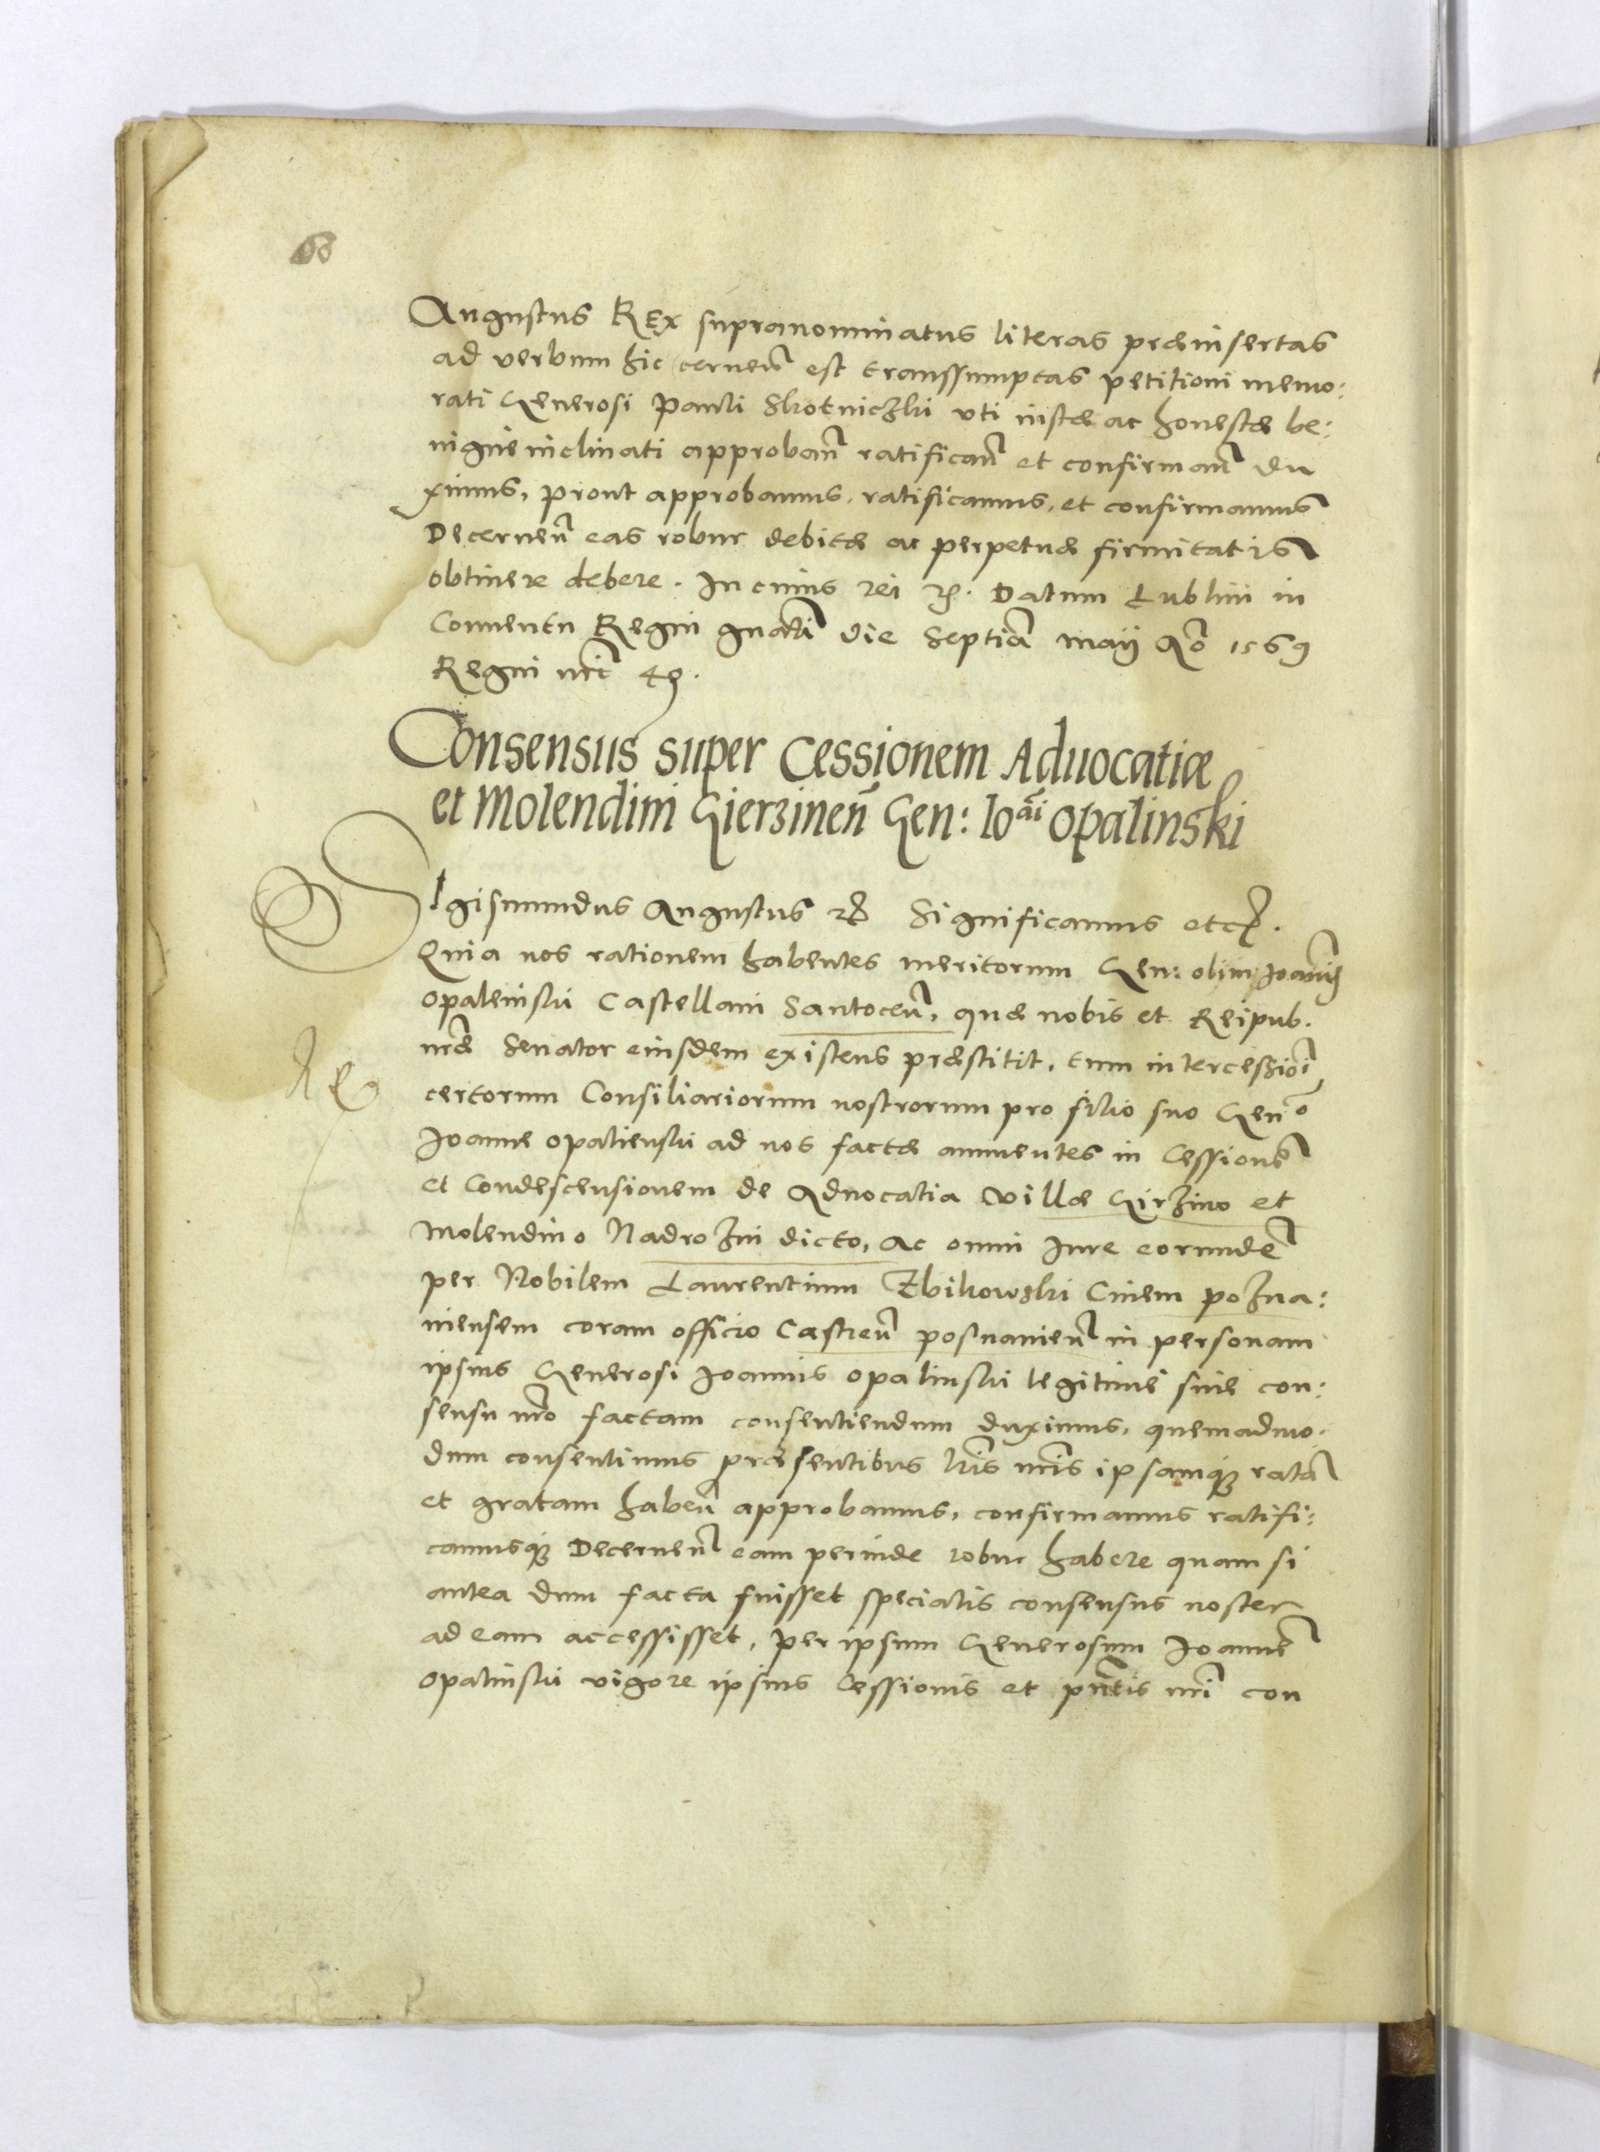 66
Augustus REx supranominatus literas præinsertas
ad verbum hic cerneñ est transsumptas petitioni memo:
rati Generosi Pauli Skotniczki vti iustæ ac honestæ be:
nigne inclinati approbañ ratificañ et confirmañ du
ximus, prout approbamus, ratificamus, et confirmamus
Decerneñ eas robur debitæ ac perpetuæ firmitatis
obtinere debere. In cuius rei &. Datum Lublini in
Conuentu Regni gnali die Septiã maij Aõ 1569
Regni nri 40.
Consensus super Cessionem Aduocatiæ
et Molendini Gierzineñ Gen: Ioãi Opalinski
Sigismundus Augustus & Significamus etc.
Quia nos rationem habentes meritorum Gen: olim Joannis
Opalenski Castellani Santoceñ, quæ nobis et Reipub.
nræ Senator eiusdem existens præstitit, tum intercessioni
certorum Consiliariorum nostrorum pro filio suo Geno
Re
Joanne Opalienski ad nos factæ annuentes in Cessionẽ
et Condescensionem de Aduocatia villæ Girzino et
Molendino Nadrozni dicto, ac omni iure eorundẽ
per Nobilem Laurentium Zbikowski Ciuem pozna:
niensem coram officio Castreñ posnanieñ in personam
ipsius Generosi Joannis Opalinski legitime sine con:
sensu nro factam consentiendum duximus, quemadmo.
dum consentimus præsentibus lris nris ipsamq; ratã
et gratam habeñ approbamus, confirmamus ratifi:
camusq; Decerneñ eam perinde robur habere quam si
antea dum facta fuisset specialis consensus noster
ad eam accessisset, per ipsum Generosum Joannẽ
Opalinski vigore ipsius Cessionis et pntis nri con